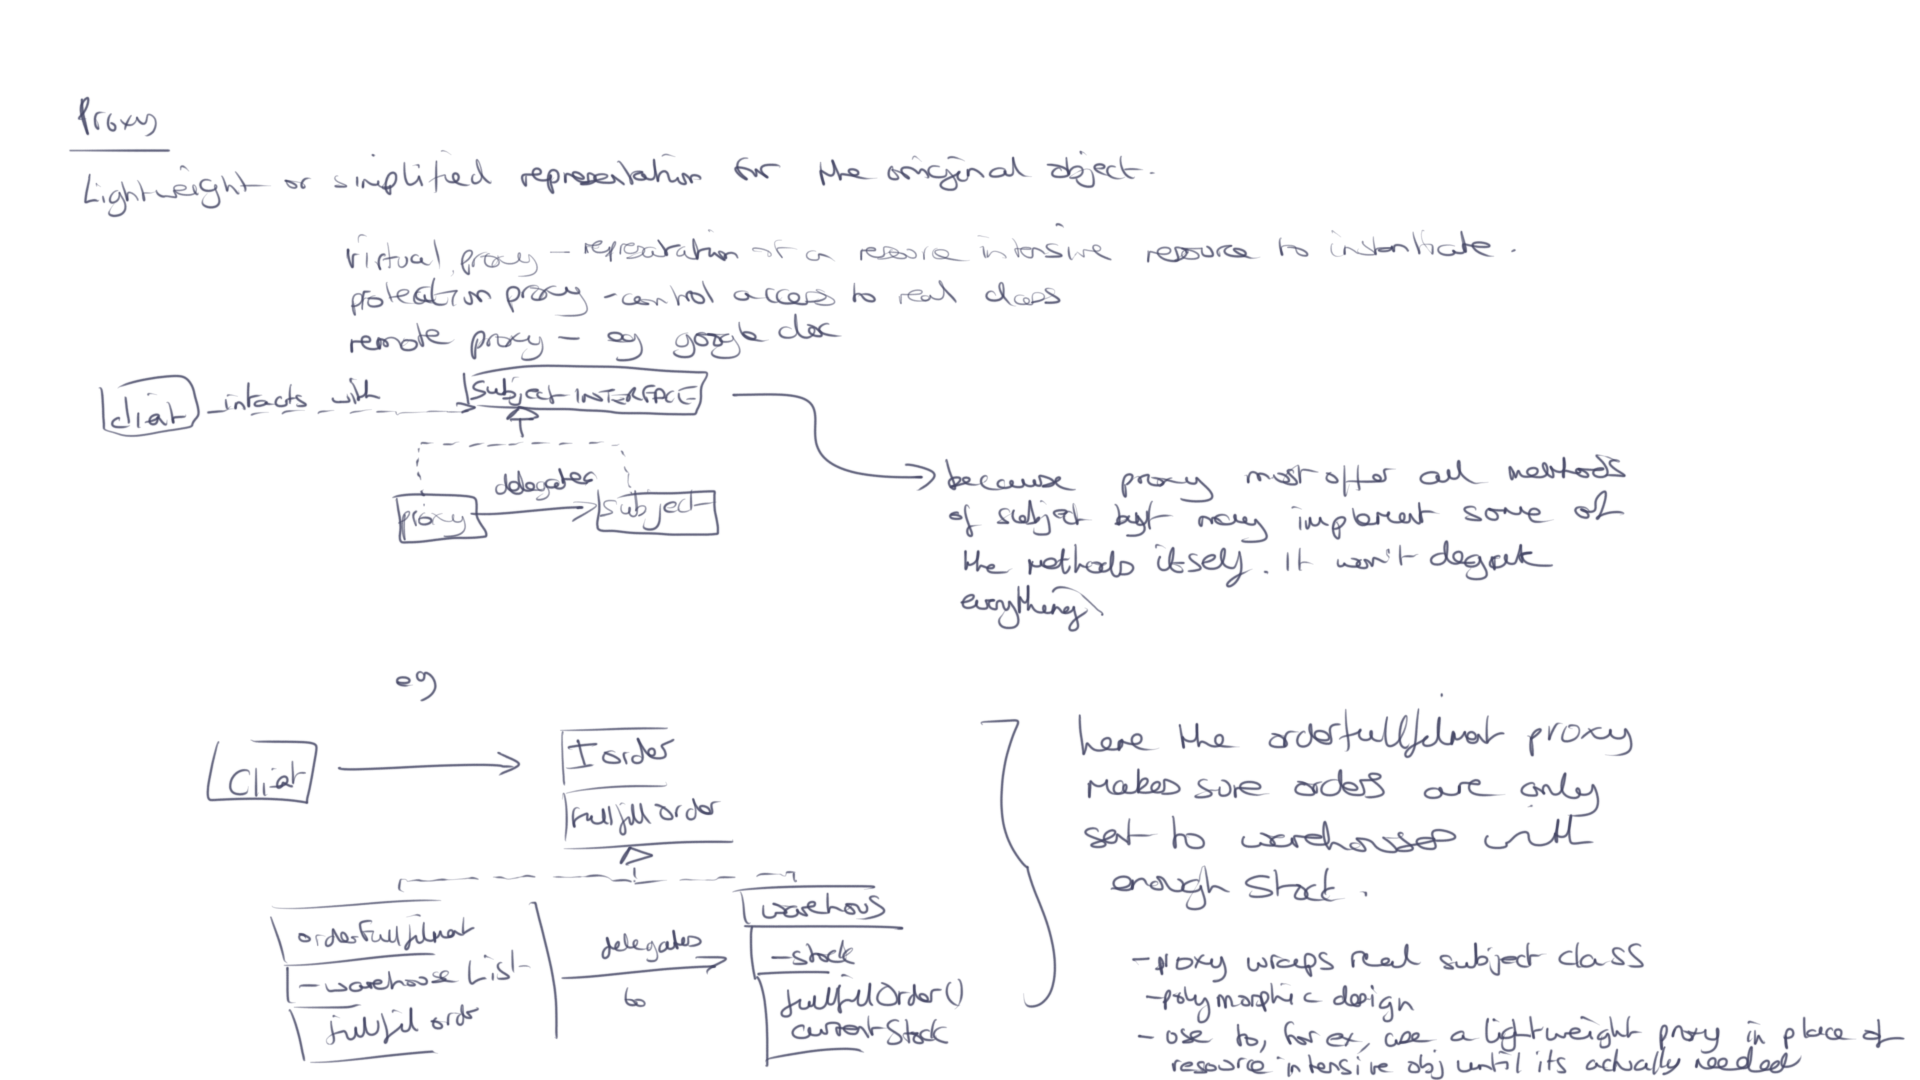 Proxy
Lightweight or simplified representation for the original object.
virtual proxy - represtation of a resource intensive resource to instantiate.
protection proxy - control access to real class
remote proxy - eg google doc
client intacts with subject INTERFACE
delegates
proxy subject
because proxy most offer all methods
of subject but may implement some of
the methods itself. It won't delegate
everything
eg
Client
Iorder
fullfill order
orderFullfilment
- warehouse List
fullfil order
delegates
to
warehous
- stock
fullfillOrder()
currentStock
here the orderfullfilment proxy
makes sure orders are only
sent to warehouses with
enough Stock.
- proxy wraps real subject class
- polymorphic design
- use to, for ex, use a lightweight proxy in place of
resource intensive obj until its actually needed